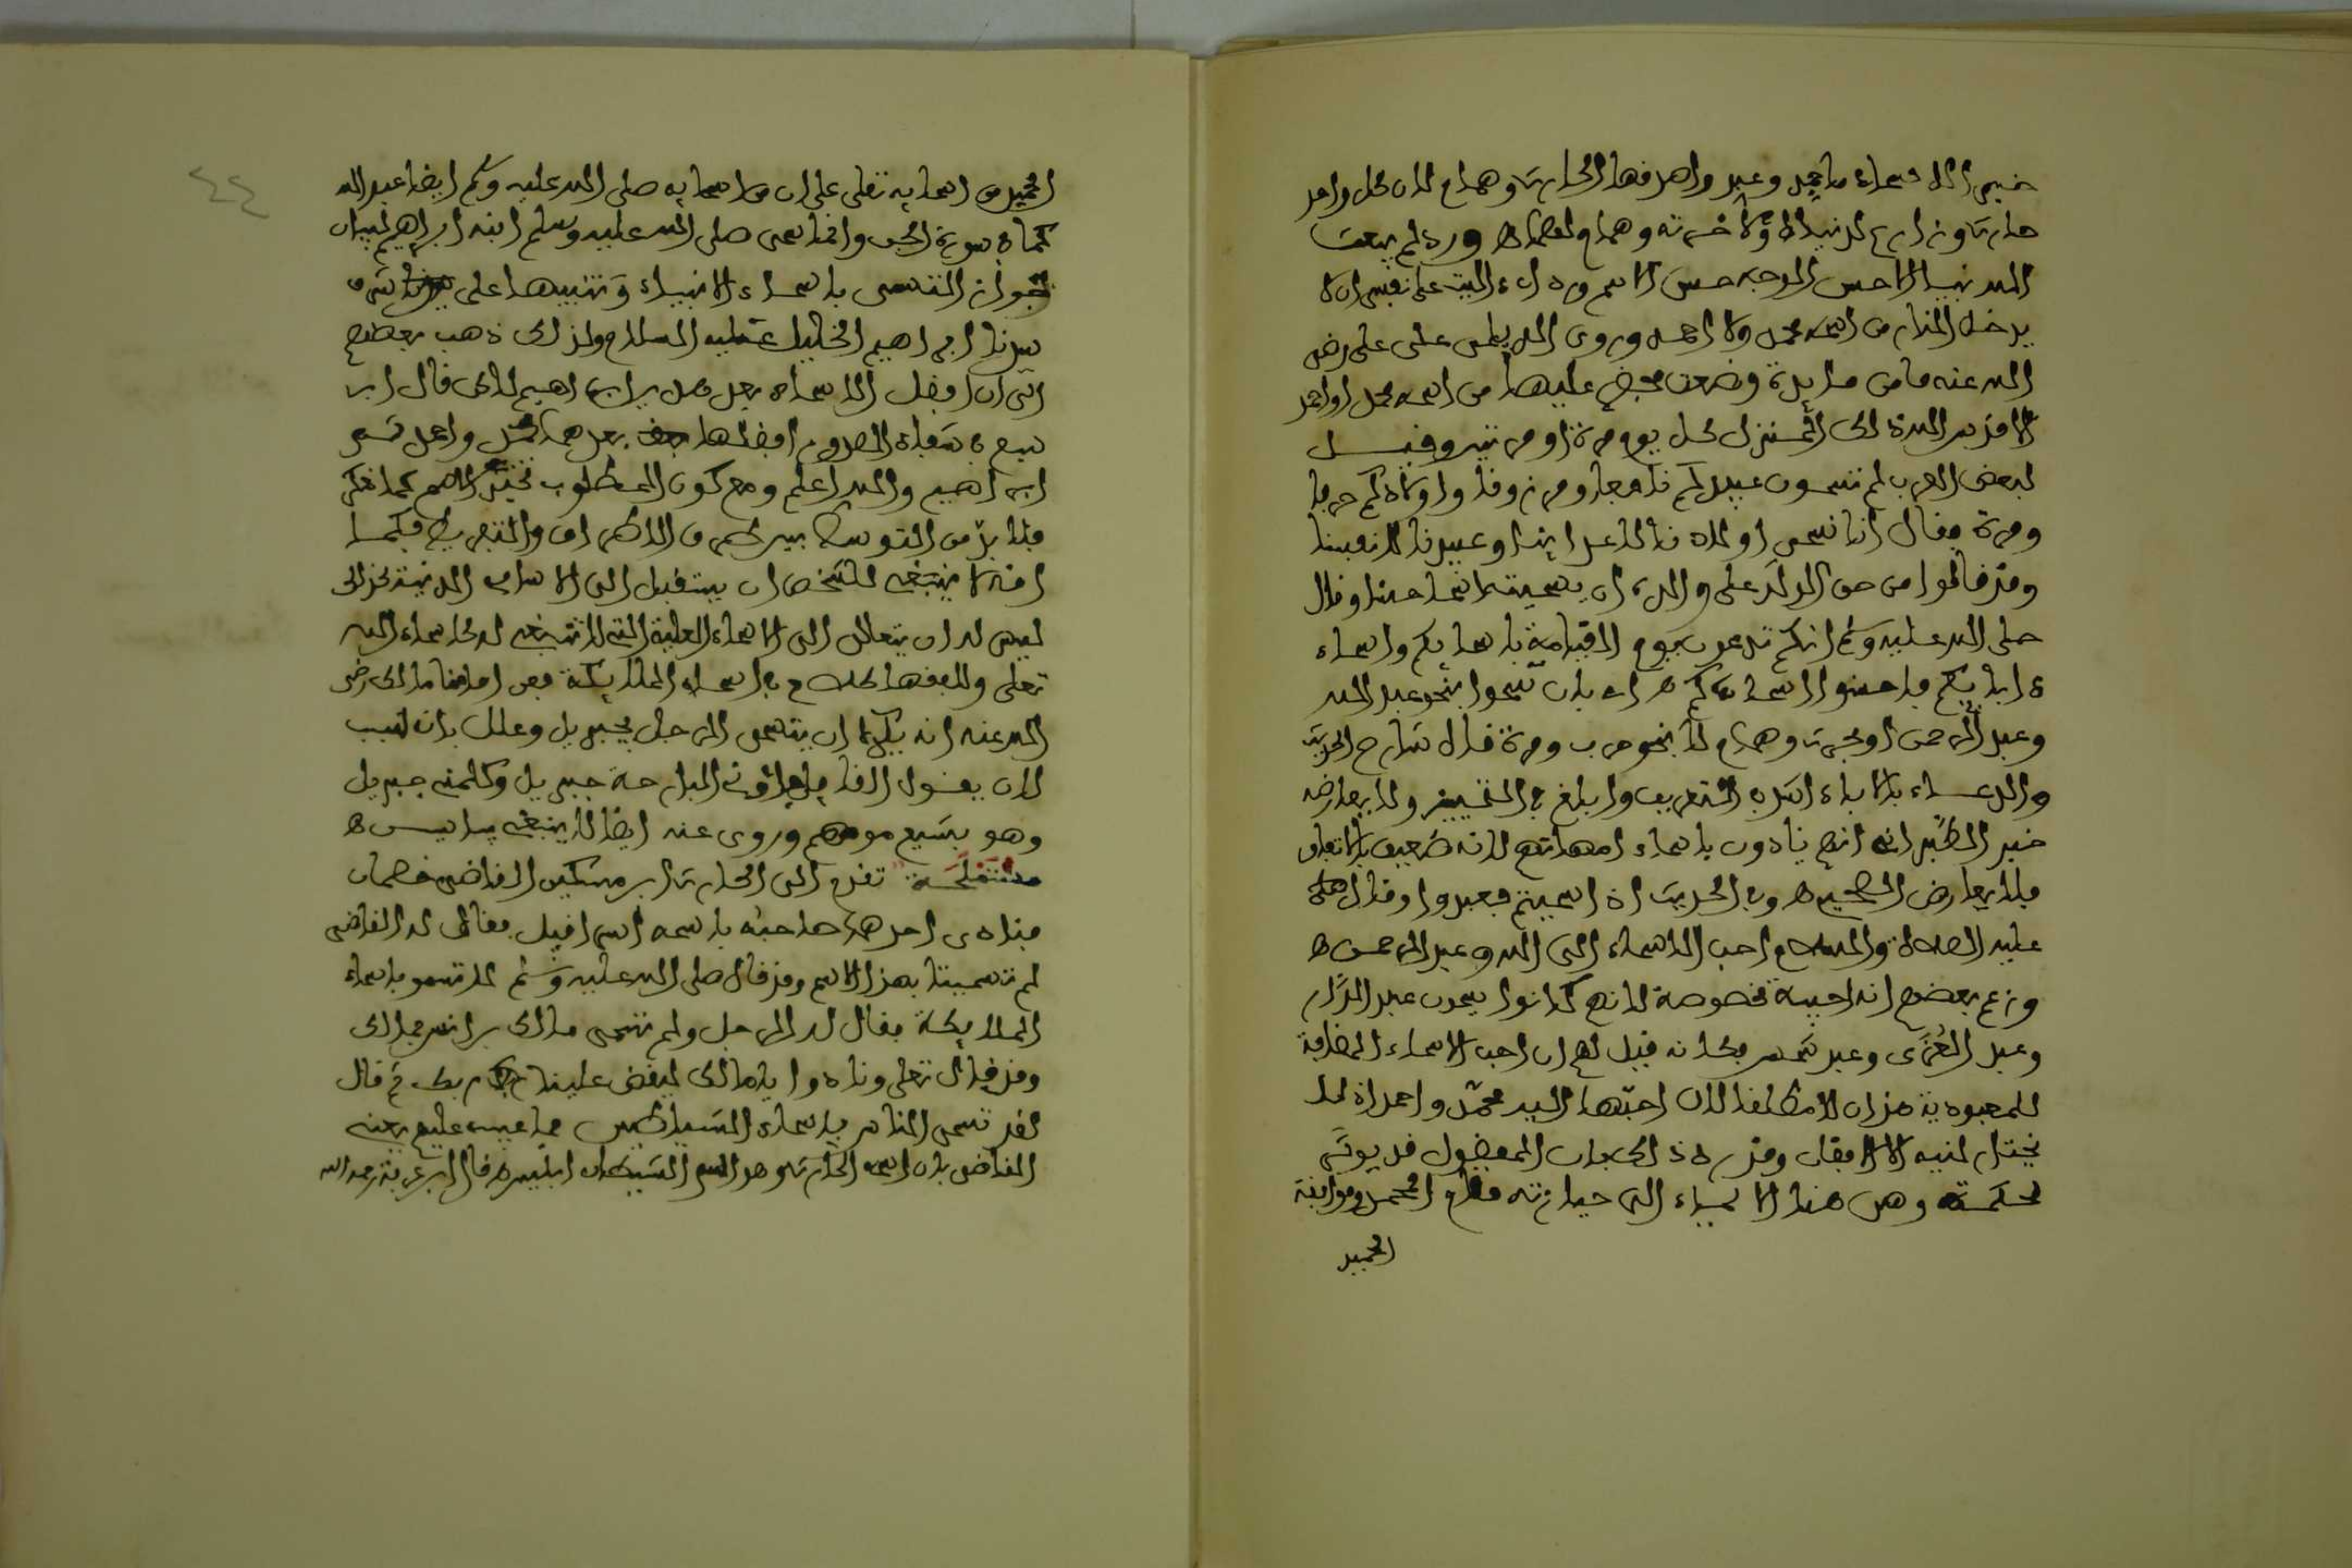 خير الاسماء ما حمد وعبد واصدقها الحارث وهمام لان كل واحد
حارث وزارع لدنياه او لاخرته وهمام لهما ه وورد لم يبعث
الله نبيا الا حسن الوجه حسن الاسم ورد اني اليت على نفسي ان لا
يدخل النار من اسمه محمد ولا احمد وروى الديلمي عن علي رضي
الله عنه ما من مايدة وضعت فحضر عليها من اسمه محمد او احمد
الا قدس الله ذلك المنزل كل يوم مرة او مرتين وقيل
لبعض العرب لم تسمون عبيدكم نافعا ومرزوقا واولادكم حربا
ومرة فقال انا نسمي اولادنا لاعداينا وعبيدنا لانفسنا
وقد قالوا من حق الولد على والده ان يسميه اسما حسنا وقال
صلى الله عليه وسلم انكم تدعون يوم القيامة باسمايكم واسماء
ءابايكم فاحسنوا اسماءكم ه اي بان تسموا بنحو عبد الله
وعبد الرحمن او بحرث وهمام لا بنحو حرب ومرة قال شارح الحديث
والدعاء بالاباء اشد في التعريف وابلغ في التمييز ولا يعارضه
خبر الطبراني انهم ينادون باسماء امهاتهم لانه ضعيف بالاتفاق
فلا يعارض الصحيح ه وفي الحديث اذا سميتم فعبدوا وقال
عليه الصلاة والسلام احب الاسماء الى الله عبد الله وعبد الرحمن ه
وزعم بعضهم انه احبية مخصوصة لانهم كانوا يسمون عبد الدار
وعبد العزى وعبد شمس فكانه قيل لهم ان احب الاسماء المضافة
للمعبودية هذان لا مطلقا لان احبها اليه محمد واحمد اذ لا
يختار لنبيه الا الافضل وقد رد ذلك بان المفضول قد يوثر
لحكمة وهي هنا الايماء الى حيازته مقام الحمد وموافقة
الحميد
الحميد من اسمايه تعلى على ان من اسمايه صلى الله عليه وسلم ايضا عبد الله
كما في سورة الجن وانما سمى صلى الله عليه وسلم ابنه ابراهيم لبيان
جواز التسمي باسماء الانبياء وتنبيها على شرف
سيدنا ابراهيم الخليل عليه السلام ولذلك ذهب بعضهم
الى ان افضل الاسماء بعد هذين ابراهيم لكن قال ابن
سبع في شفاء الصدور افضلها بعدهما محمد واحمد ثم
ابراهيم والله اعلم ومع كون المطلوب تخير الاسم كما تقدم
فلا بد من التوسط بين طرفي الافراط والتفريط فكما
انه لا ينبغي للشخص ان يستقبل الى الاسامي الدنية كذلك
ليس له ان يتعالى الى الاسماء العلية التي لا تنبغي له كاسماء الله
تعلى وللفقهاء كلام في اسماء الملائكة فعن امامنا مالك رضي
الله عنه انه يكره ان يتسمى الرجل بجبريل وعلل بان سبب
لان يقول القايل رأيت البارحة جبريل وكلمني جبريل
وهو بشيع موهم وروى عنه ايضا لا ينبغي بياسين ه
مستملحة تقدم الى الحارث ابن مسكين القاضي خصمان
فنادى احدهما صاحبه باسمه اسرافيل فقال له القاضي
لم تسميت بهذا الاسم وقد قال صلى الله عليه وسلم لا تسموا باسماء
الملايكة فقال له الرجل ولم تسمى مالك بن انس مالك
وقد قال تعلى ونادوا يا مالك ليقض علينا ربك ثم قال
لقد تسمى الناس باسماء الشياطين فما عيب عليهم يعني
القاضي بان اسمه الحارث وهو اسم الشيطان ابليس ه قال ابن عرفة رحمه الله
٤٤